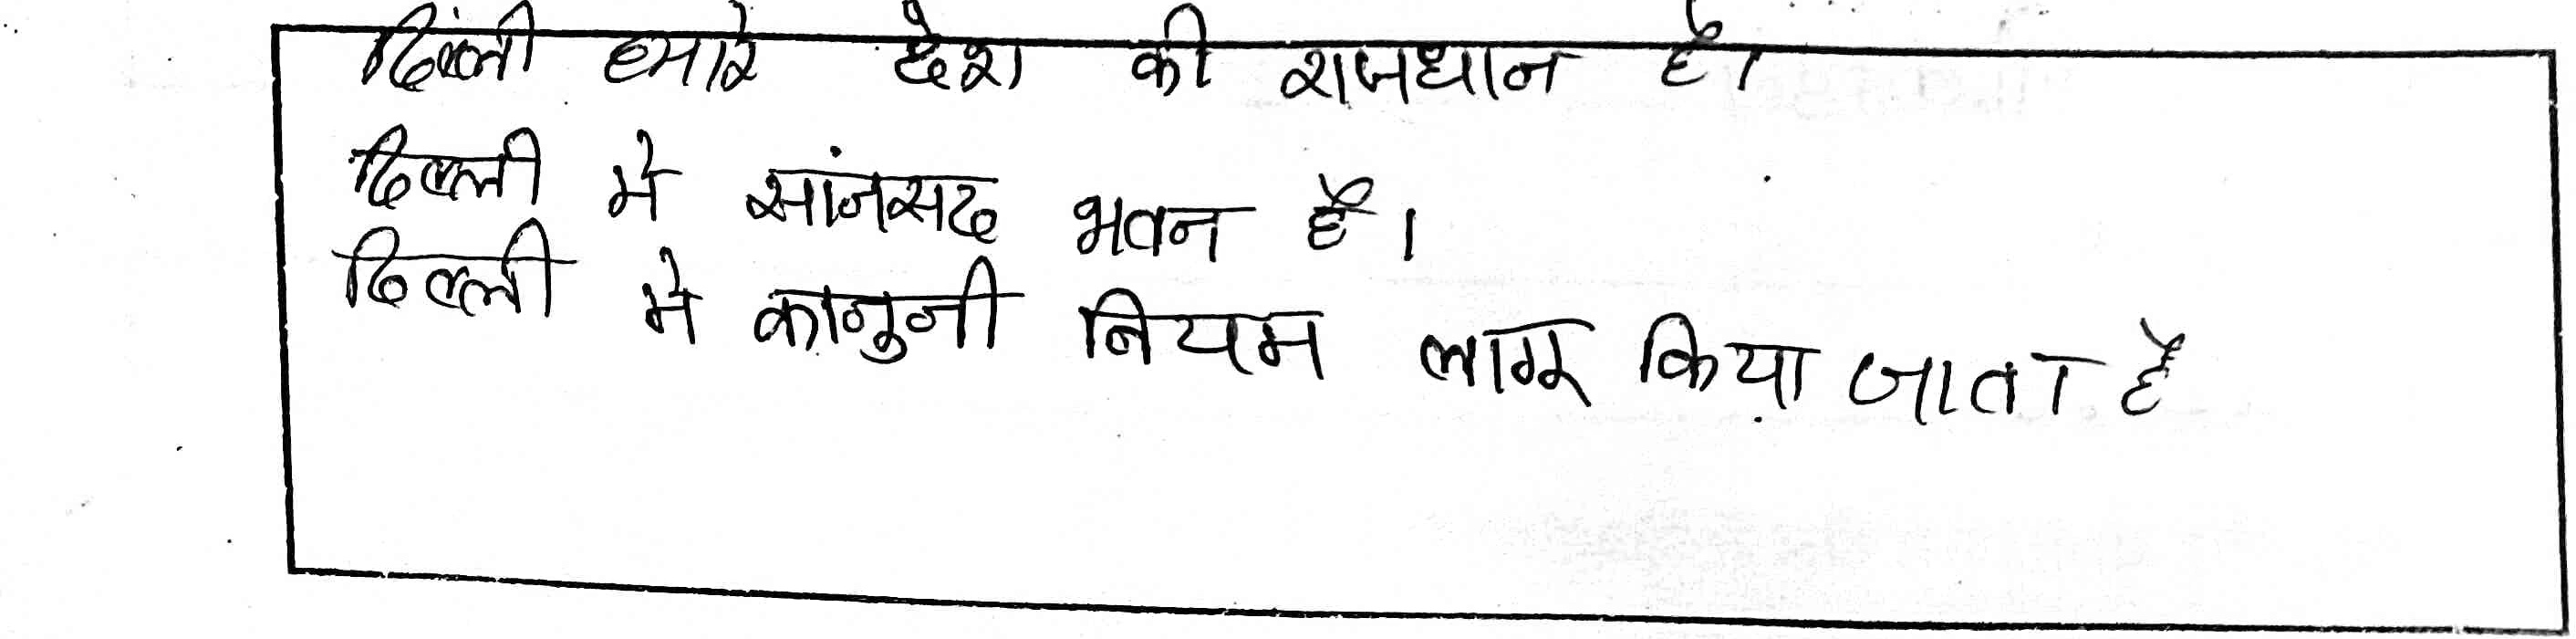 दिल्ली हमारे देश की राजधान है।
दिल्ली मे सांजसद भवन है।
दिल्ली मे कानुनी नियम लागू किया जाता है